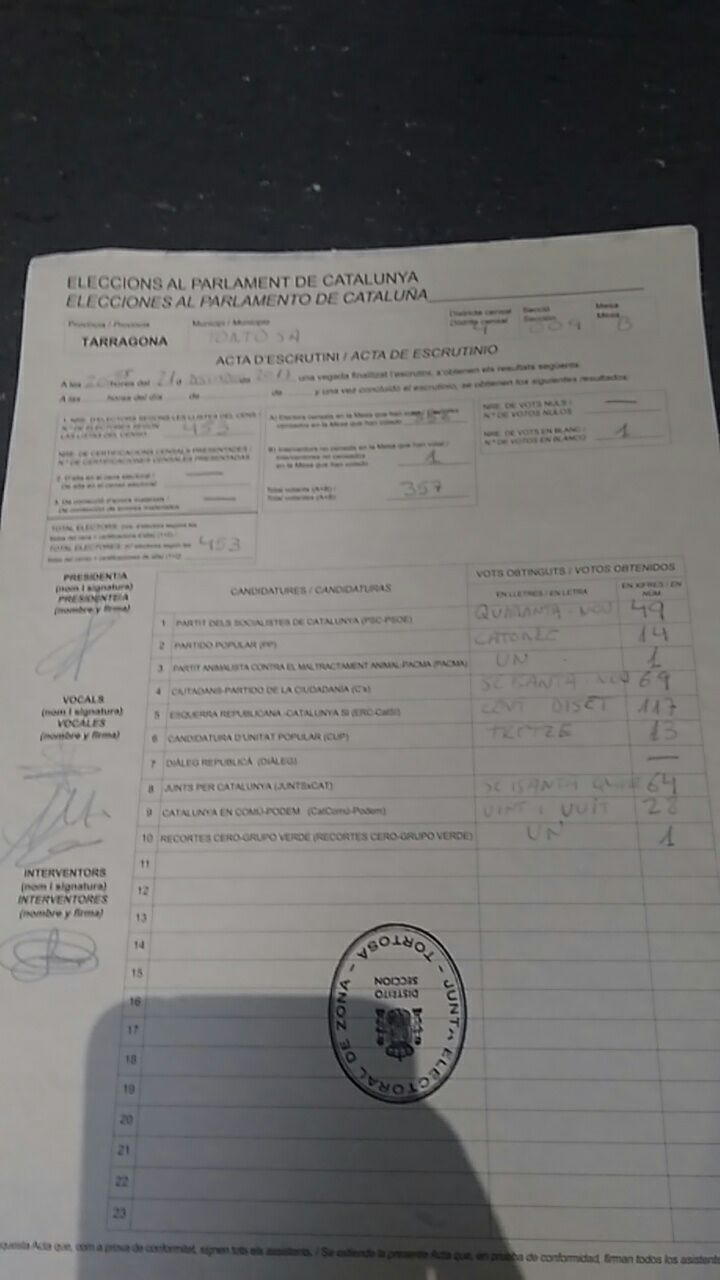 ELECCIONS AL PARLAMENT DE CATALUNYA
ELECCIONES AL PARLAMENTO DE CATALUÑA
Província / Provincia
Municipi / Municipio
Districte censal
Distrito censal
Secció
Sección
Mesa
Mesa
TARRAGONA
TORTOSA
4
009
B
ACTA D'ESCRUTINI / ACTA DE ESCRUTINIO
A les hores del 21 d de 2017, una vegada finalitzat l'escrutini, s'obtenen els resultats següents:
A las horas del día de de y una vez concluido el escrutinio, se obtienen los siguientes resultados:
1. NRE. D'ELECTORS SEGONS LES LLISTES DEL CENS /
N.º DE ELECTORES SEGÚN
LAS LISTAS DEL CENSO
453
NRE. DE CERTIFICACIONS CENSALS PRESENTADES /
N.º DE CERTIFICACIONES CENSALES PRESENTADAS
2. D'alta en el cens electoral /
De alta en el censo electoral
3. De correcció d'errors materials /
De corrección de errores materiales
TOTAL ELECTORS
TOTAL ELECTORES
453
A) Electors censats en la Mesa que han votat / Electores
censados en la Mesa que han votado
356
B) Interventors no censats en la Mesa que han votat /
Interventores no censados
en la Mesa que han votado
1
Total votants (A+B) /
Total votantes (A+B)
357
NRE. DE VOTS NULS /
N.º DE VOTOS NULOS
—
NRE. DE VOTS EN BLANC /
N.º DE VOTOS EN BLANCO
1
PRESIDENT/A
(nom i signatura)
PRESIDENTE/A
(nombre y firma)
VOCALS
(nom i signatura)
VOCALES
(nombre y firma)
INTERVENTORS
(nom i signatura)
INTERVENTORES
(nombre y firma)
CANDIDATURES / CANDIDATURAS
VOTS OBTINGUTS / VOTOS OBTENIDOS
EN LLETRES / EN LETRA
EN XIFRES / EN NÚM.
1 PARTIT DELS SOCIALISTES DE CATALUNYA (PSC-PSOE) QUARANTA-NOU 49
2 PARTIDO POPULAR (PP) CATORZE 14
3 PARTIT ANIMALISTA CONTRA EL MALTRACTAMENT ANIMAL-PACMA (PACMA) UN 1
4 CIUTADANS-PARTIDO DE LA CIUDADANÍA (C's) SEIXANTA-NOU 69
5 ESQUERRA REPUBLICANA-CATALUNYA SÍ (ERC-CatSí) CENT DISET 117
6 CANDIDATURA D'UNITAT POPULAR (CUP) TRETZE 13
7 DIÀLEG REPUBLICÀ (DIÀLEG) —
8 JUNTS PER CATALUNYA (JUNTSxCAT) SEIXANTA 64
9 CATALUNYA EN COMÚ-PODEM (CatComú-Podem) VINT I VUIT 28
10 RECORTES CERO-GRUPO VERDE (RECORTES CERO-GRUPO VERDE) UN 1
11
12
13
14
15
16
17
18
19
20
21
22
23
JUNTA ELECTORAL DE ZONA - TORTOSA -
DISTRITO
SECCION
questa Acta que, com a prova de conformitat, signen tots els assistents. / Se extiende la presente Acta que, en prueba de conformidad, firman todos los asistente